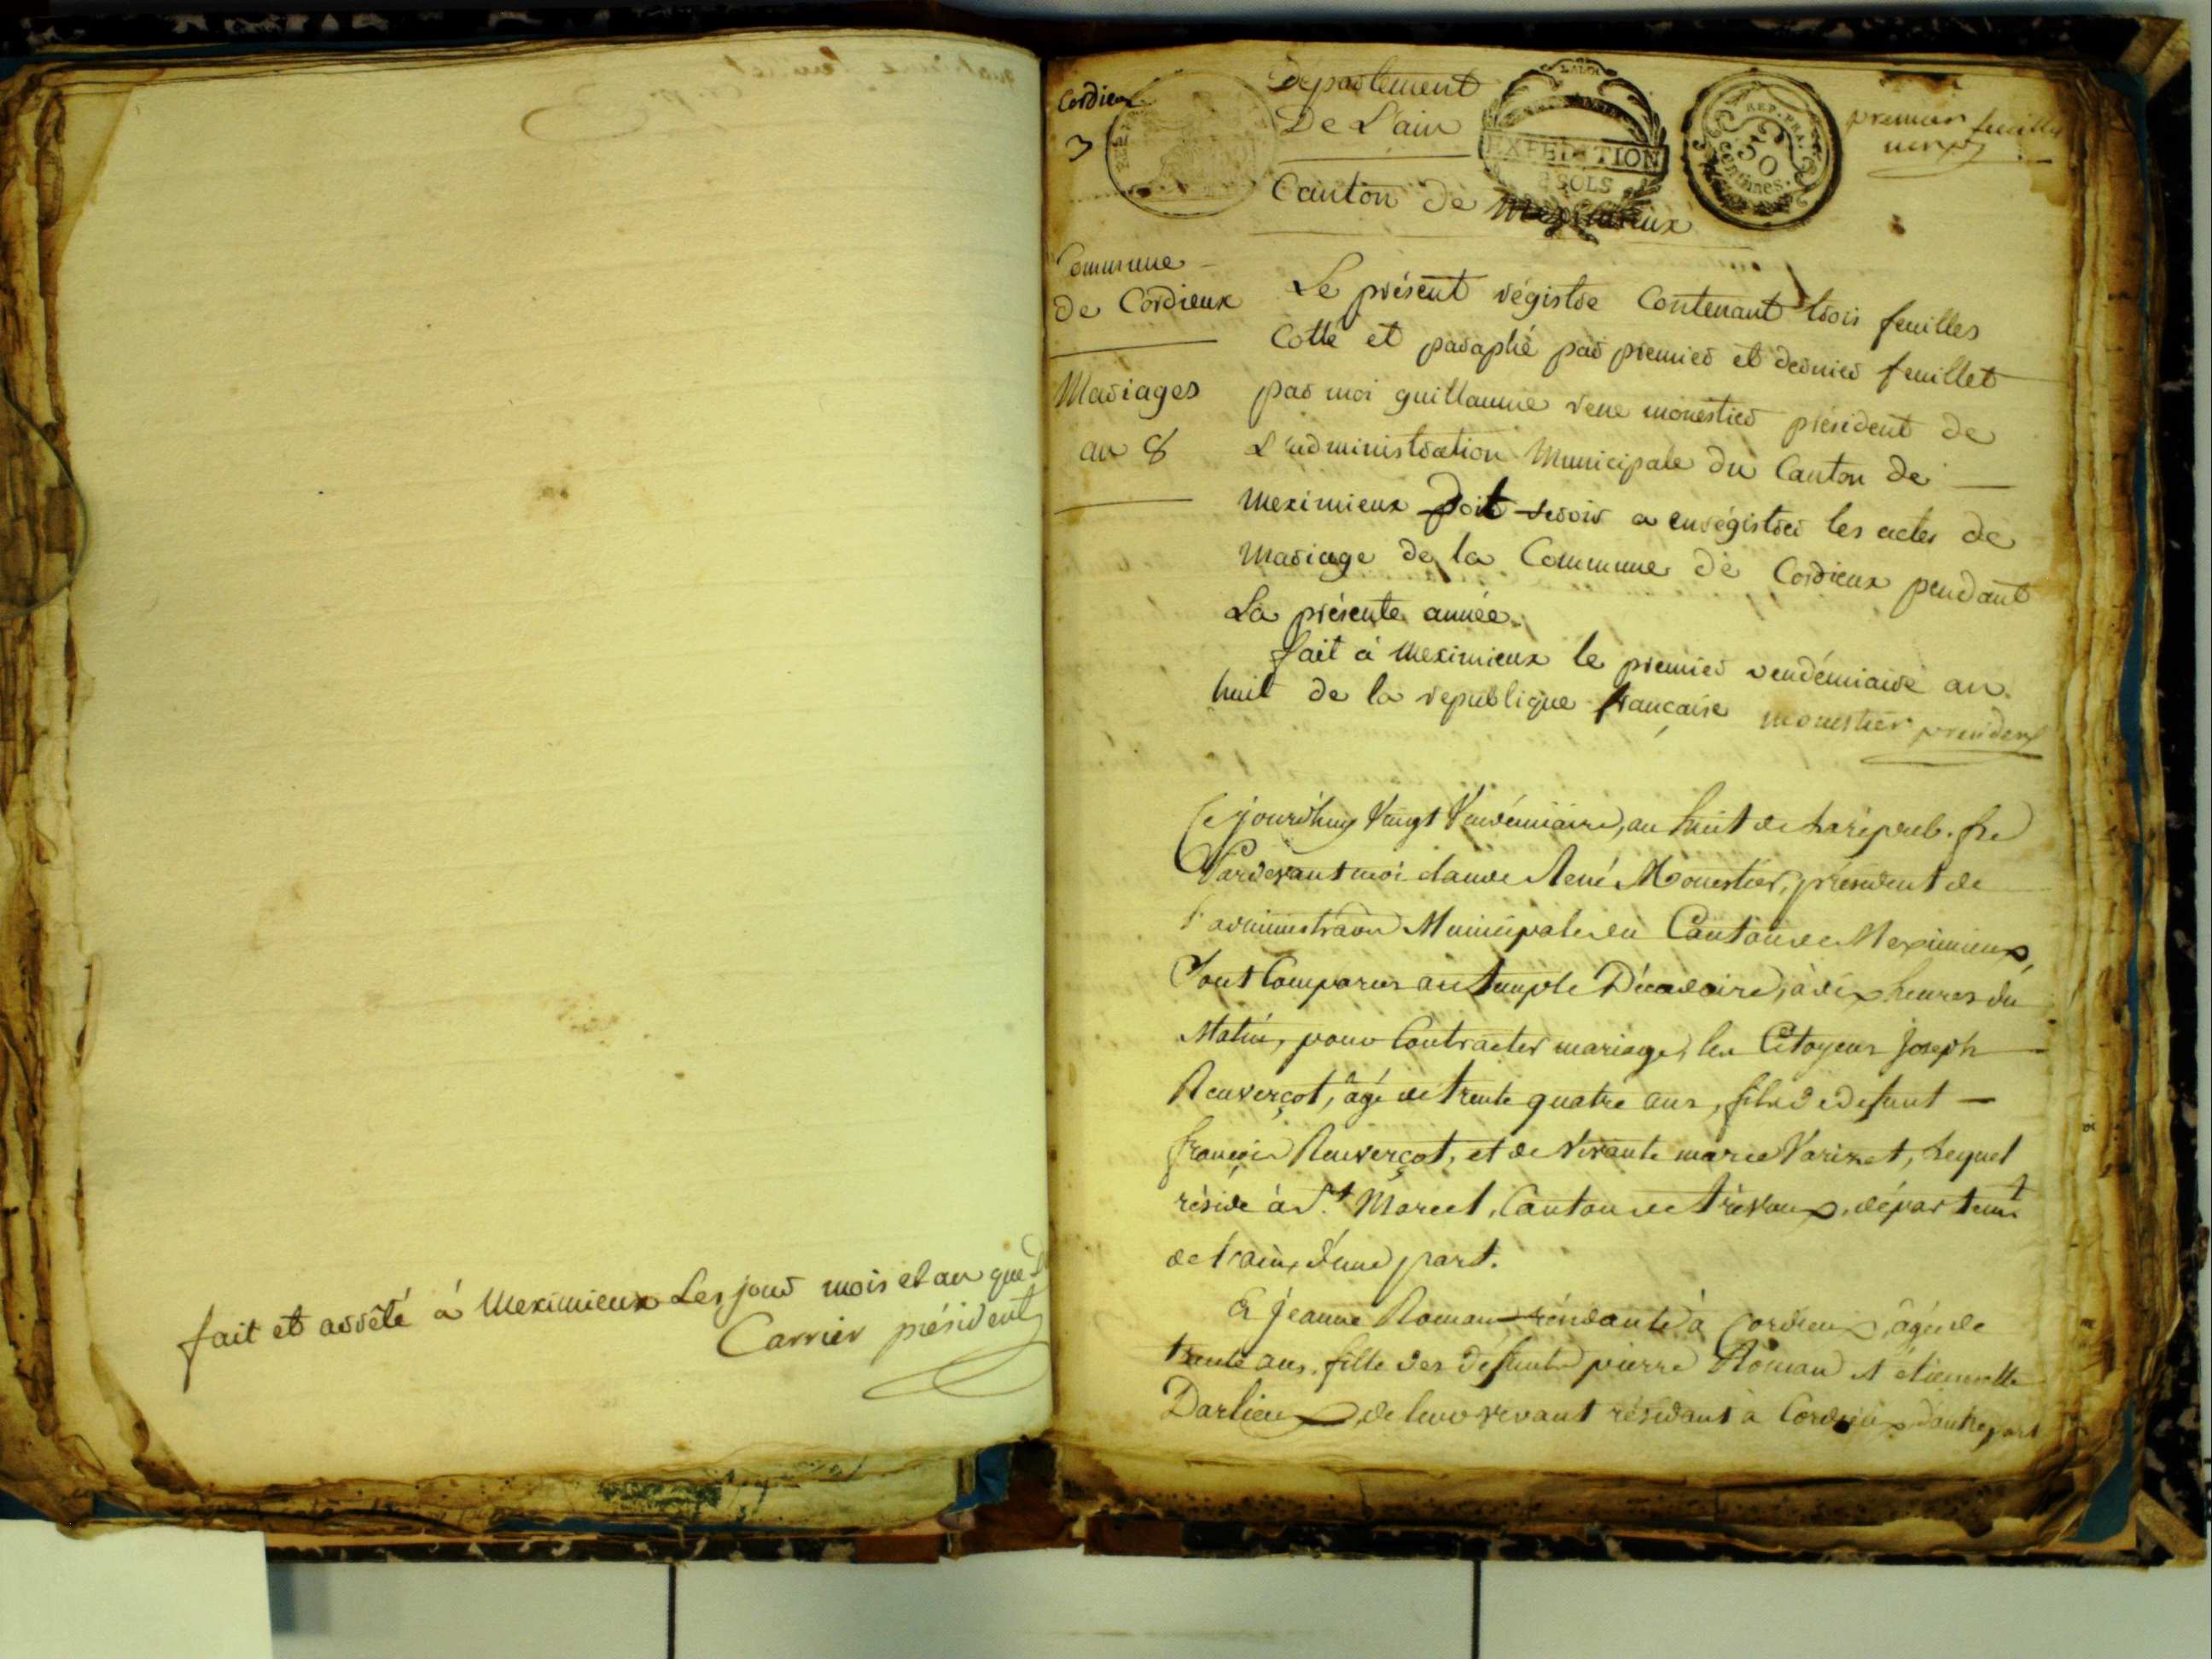 fait et arrêté à Meximieux les jour mois et an que
Carrier président
Cordieux
3
Département
De L'ain
Canton de Meximieux
EXPEDITION
2 SOLS
REP. FRA.
50
centimes.
premier feuillet
Commune
de Cordieux
Mariages
an 8
Le présent régistre Contenant trois feuilles
Cotté et paraphé par premier et dernier feuillet
par moi guillaume rene monestier président de
L'administration Municipale du Canton de
Meximieux doit servir a enrégistrer les actes de
Mariage de la Commune de Cordieux pendant
La présente année.
fait à Meximieux le premier vendémiaire an
huit de la republique française monestier president
Cejourdhuy Vingt Vendémiaire, an huit de la répub. fse
Pardevant moi claude René Monestier, président de
l'administraon Municipale du Canton de Meximieux,
Sont Comparus au temple Décadaire, à dix heures du
Matin, pour Contracter mariage, les Citoyens Joseph
Renverçot, âgé de trente quatre ans, fils de defunt
françois Renverçot, et de vivante marie Varizet, Lequel
réside à St. Marcel, Canton de trévoux, départemt
de l'ain, d'une part.
Et Jeanne Roman résidante à Cordieux, âgée de
trente ans, fille des defunts pierre Roman et étiennette
Darlieux, de leur vivant résidant à Cordieux d'autre part